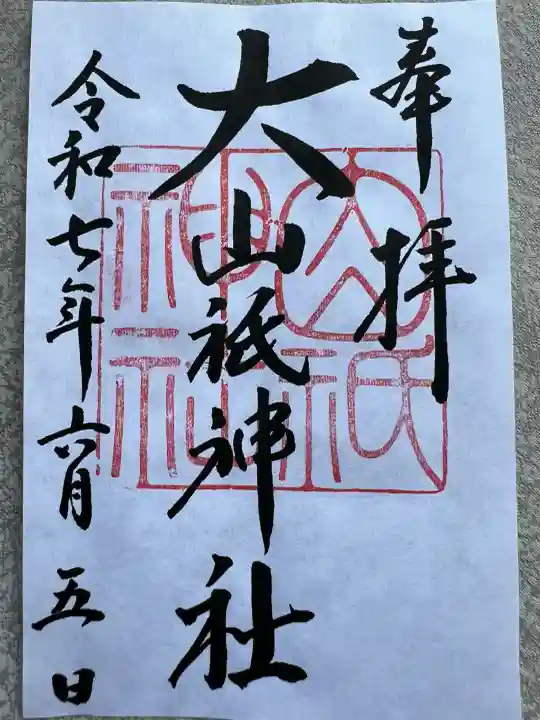 奉拝
大山祇神社
令和七年六月五日
大山祇神社